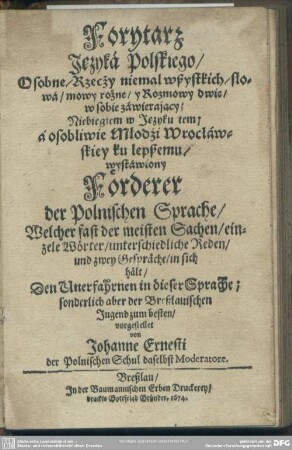 Forytarz
Języká Polskiego/
Osobne/Rzecży niemal wßystkich/ slo-
wá/ mowy rożne/ y Rozmowy dwie/
w sobie záwieraiący/
Niebiegłem w Języku tem/
á osobliwie Młodźi Wrocłáw-
skiey ku lepßemu/
wystáwiony
Förderer
der Polnischen Sprache/
Welcher fast der meisten Sachen/ ein-
zele Wörter/ unterschiedliche Reden/
und zwey Gespräche/ in sich
hält/
Den Unerfahrnen in dieser Sprache;
sonderlich aber der Breßlauischen
Jugend zum besten/
vorgestellet
von
Johanne Ernesti
der Polnischen Schul daselbst Moderatore.
Breßlau/
In der Baumannischen Erben Druckerey/
druckts Gottfried Gründer, 1674.